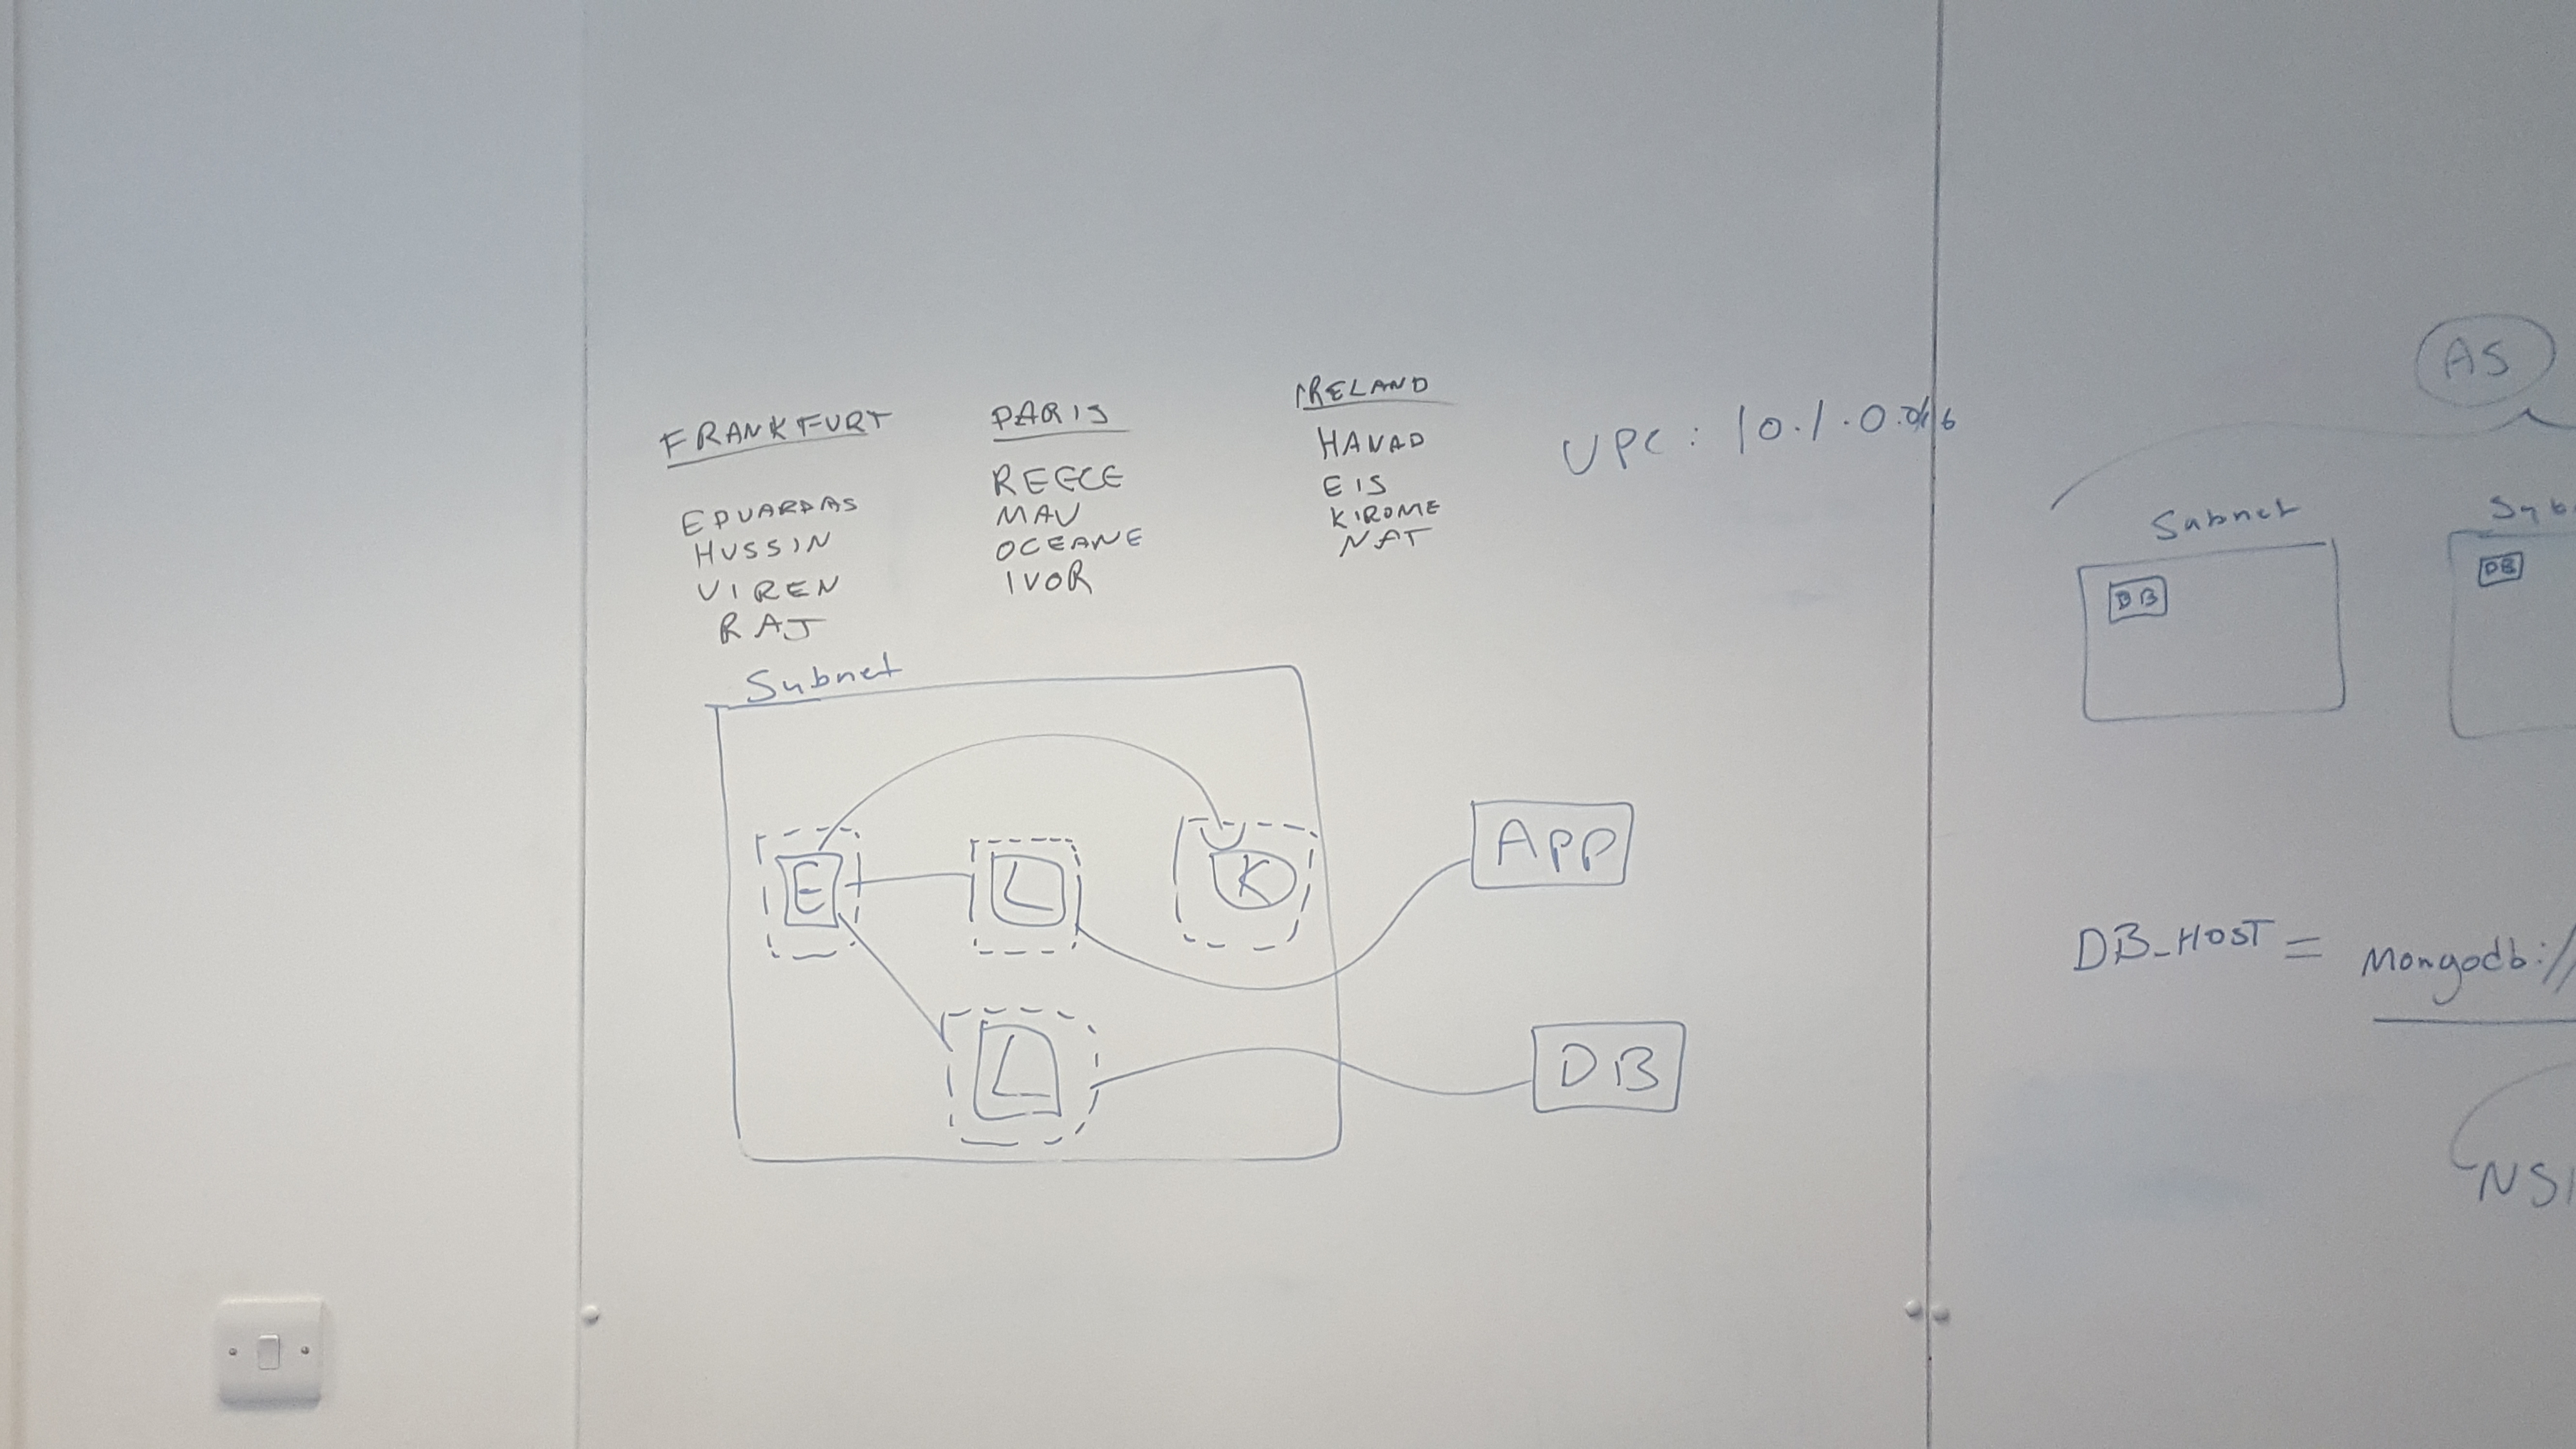 FRANKFURT
EDUARDAS
HUSSIN
VIREN
RAJ
PARIS
REECE
MAV
OCEANE
IVOR
IRELAND
HAVAD
EIS
KIROME
NAT
VPC: 10.1.0.0/16
Subnet
E
L
K
L
App
DB
AS
Subnet
DB
Sub
DB
DB_HOST = Mongodb://